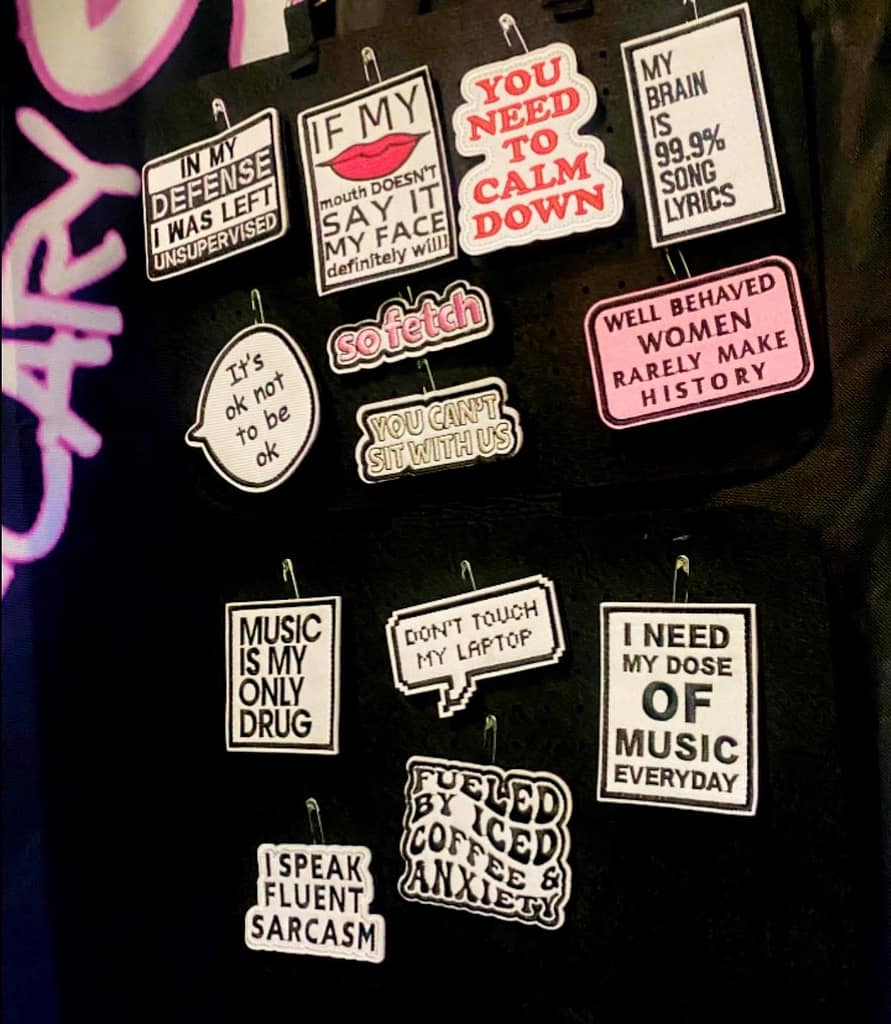 CARY
IN MY
DEFENSE
I WAS LEFT
UNSUPERVISED
IF MY
mouth DOESN'T
SAY IT
MY FACE
definitely will!
YOU
NEED
TO
CALM
DOWN
MY
BRAIN
IS
99.9%
SONG
LYRICS
It's
ok not
to be
ok
so fetch
YOU CAN'T
SIT WITH US
WELL BEHAVED
WOMEN
RARELY MAKE
HISTORY
MUSIC
IS MY
ONLY
DRUG
DON'T TOUCH
MY LAPTOP
I NEED
MY DOSE
OF
MUSIC
EVERYDAY
FUELED
BY ICED
COFFEE &
ANXIETY
I SPEAK
FLUENT
SARCASM